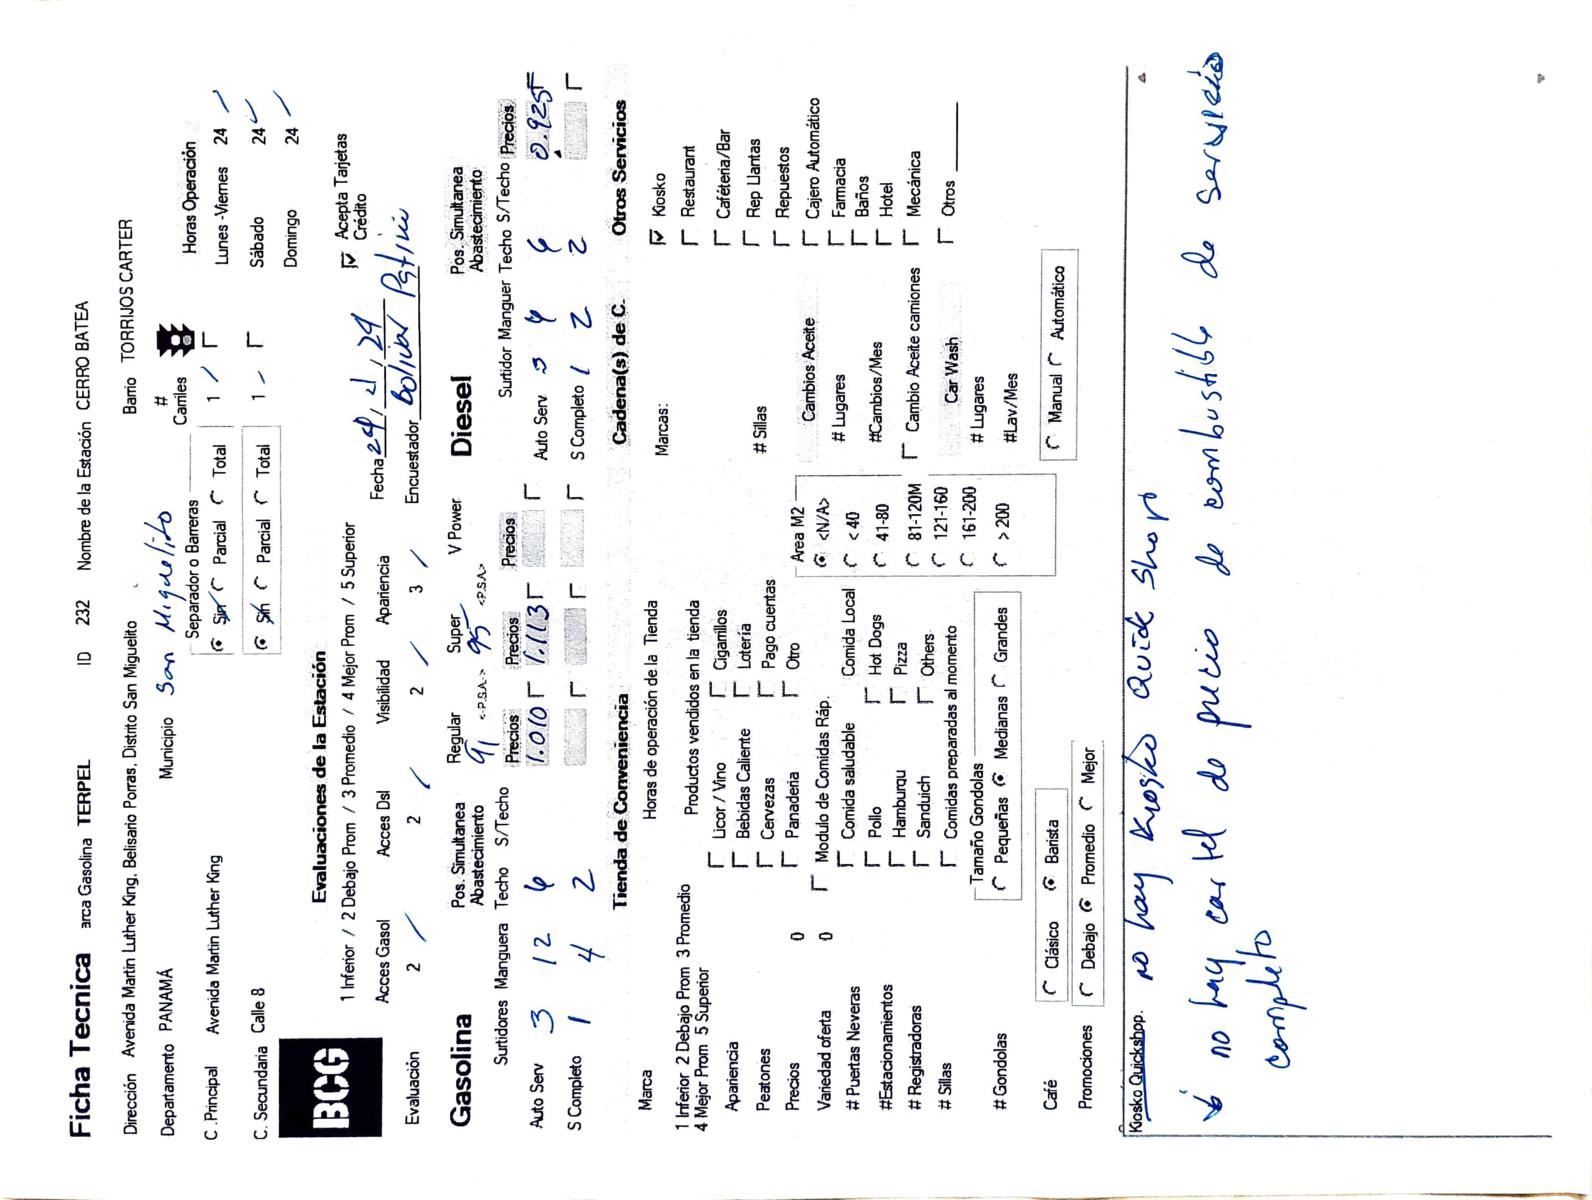 Ficha Tecnica arca Gasolina TERPEL ID 232 Nombre de la Estación CERRO BATEA
Dirección Avenida Martin Luther King, Belisario Porras, Distrito San Miguelito Barrio TORRIJOS CARTER
Departamento PANAMÁ Municipio San Miguelito # Carriles Horas Operación
Separador o Barreras
C .Principal Avenida Martin Luther King Sin Parcial Total 1 Lunes -Viernes 24
C. Secundaria Calle 8 Sin Parcial Total 1 Sábado 24
Domingo 24
BCG
Evaluaciones de la Estación
1 Inferior / 2 Debajo Prom / 3 Promedio / 4 Mejor Prom / 5 Superior
Acepta Tarjetas Crédito
Fecha
Acces Gasol Acces Dsl Visibilidad Apariencia
Evaluación 2 2 2 3 Encuestador Bolivar
Gasolina Pos. Simultanea Abastecimiento Regular 91 Super 95 V Power Diesel Pos. Simultanea Abastecimiento
<-P.S.A.-> <-P.S.A.->
Surtidores Manguera Techo S/Techo Precios Precios Precios Surtidor Manguer Techo S/Techo Precios
Auto Serv 3 12 6 1.010 1.113 Auto Serv 3 0.925
S Completo 1 4 2 S Completo 1 2 2
Tienda de Conveniencia Cadena(s) de C. Otros Servicios
Marca Horas de operación de la Tienda Marcas:
1 Inferior 2 Debajo Prom 3 Promedio
4 Mejor Prom 5 Superior
Apariencia
Peatones
Precios 0
Variedad oferta 0
# Puertas Neveras
#Estacionamientos
# Registradoras
# Sillas
# Gondolas
Café Clásico Barista
Promociones Debajo Promedio Mejor
Productos vendidos en la tienda
Licor / Vino Cigarillos
Bebidas Caliente Lotería
Cervezas Pago cuentas
Panaderia Otro
Modulo de Comidas Ráp.
Comida saludable Comida Local
Pollo Hot Dogs
Hamburqu Pizza
Sanduich Others
Comidas preparadas al momento
Tamaño Gondolas
Pequeñas Medianas Grandes
Area M2
<N/A>
< 40
41-80
81-120M
121-160
161-200
> 200
# Sillas
Cambios Aceite
# Lugares
#Cambios/Mes
Cambio Aceite camiones
Car Wash
# Lugares
#Lav/Mes
Manual Automático
Kiosko
Restaurant
Caféteria/Bar
Rep Llantas
Repuestos
Cajero Automático
Farmacia
Baños
Hotel
Mecánica
Otros
Kiosko Quickshop. no hay Kiosko Quick Shop
no hay cartel de precio de combustible de servicio
completo